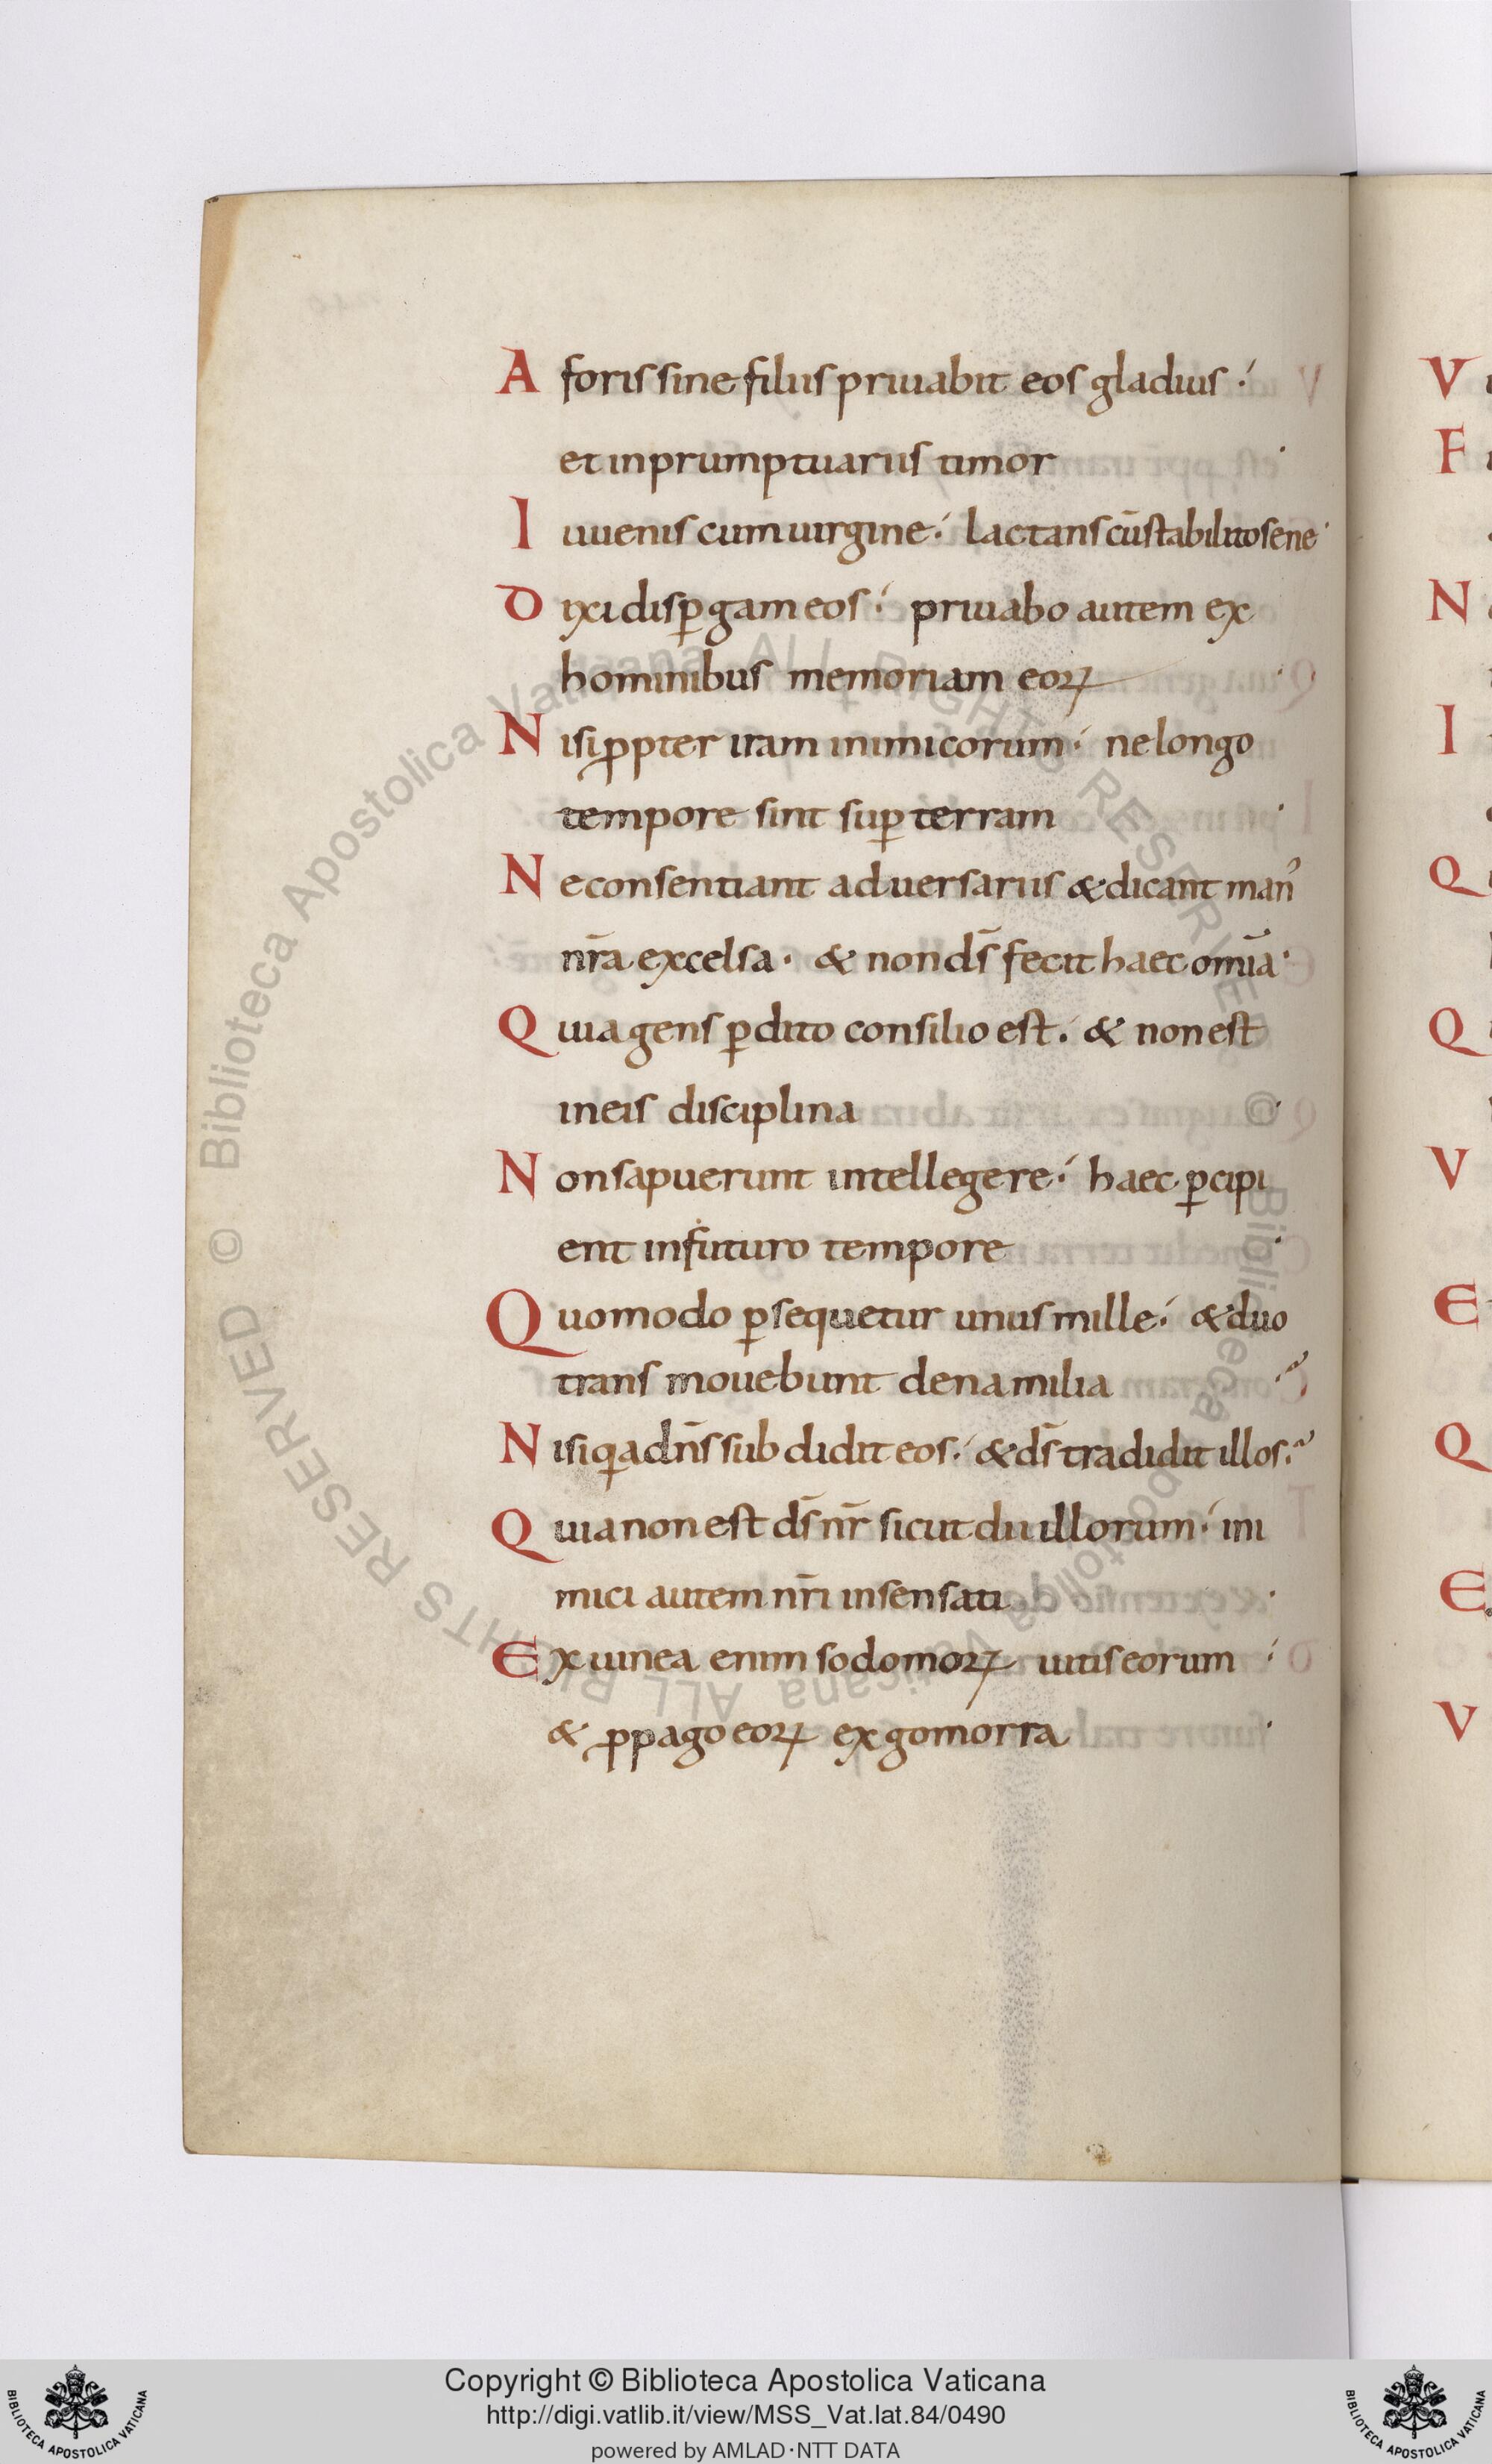 A foris sine filiis priuabit eos gladius ·
et in prumptuariis timor ·
I uuenis cum uirgine · lactans cū stabilito sene ·
D ixi disꝑgam eos · priuabo autem ex
hominibus memoriam eoꝝ ·
N isi ꝓpter iram inimicorum · ne longo
tempore sint suꝑ terram ·
N e consentiant aduersariis & dicant man᾽
nr̄a excelsa · & non ds̄ fecit haec omīa ·
Q uia gens ꝑdito consilio est · & non est
in eis disciplina ·
N on sapuerunt intellegere · haec ꝑcipi
ent in futuro tempore ·
Q uomodo ꝑsequetur unus mille · & duo
transmouebunt dena milia ·
N isi qa dn̄s subdidit eos · & ds̄ tradidit illos ·
Q uia non est ds̄ nr̄ sicut dii illorum · ini
mici autem nr̄i insensati ·
E x uinea enim sodomoꝝ uitis eorum ·
& ꝓpago eoꝝ ex gomorra ·
V
F
N
I
Q
Q
V
E
Q
E
V
© Biblioteca Apostolica Vaticana ALL RIGHTS RESERVED
© Biblioteca Apostolica Vaticana ALL RIGHTS RESERVED
Copyright © Biblioteca Apostolica Vaticana
http://digi.vatlib.it/view/MSS_Vat.lat.84/0490
powered by AMLAD·NTT DATA
BIBLIOTECA APOSTOLICA VATICANA
BIBLIOTECA APOSTOLICA VATICANA